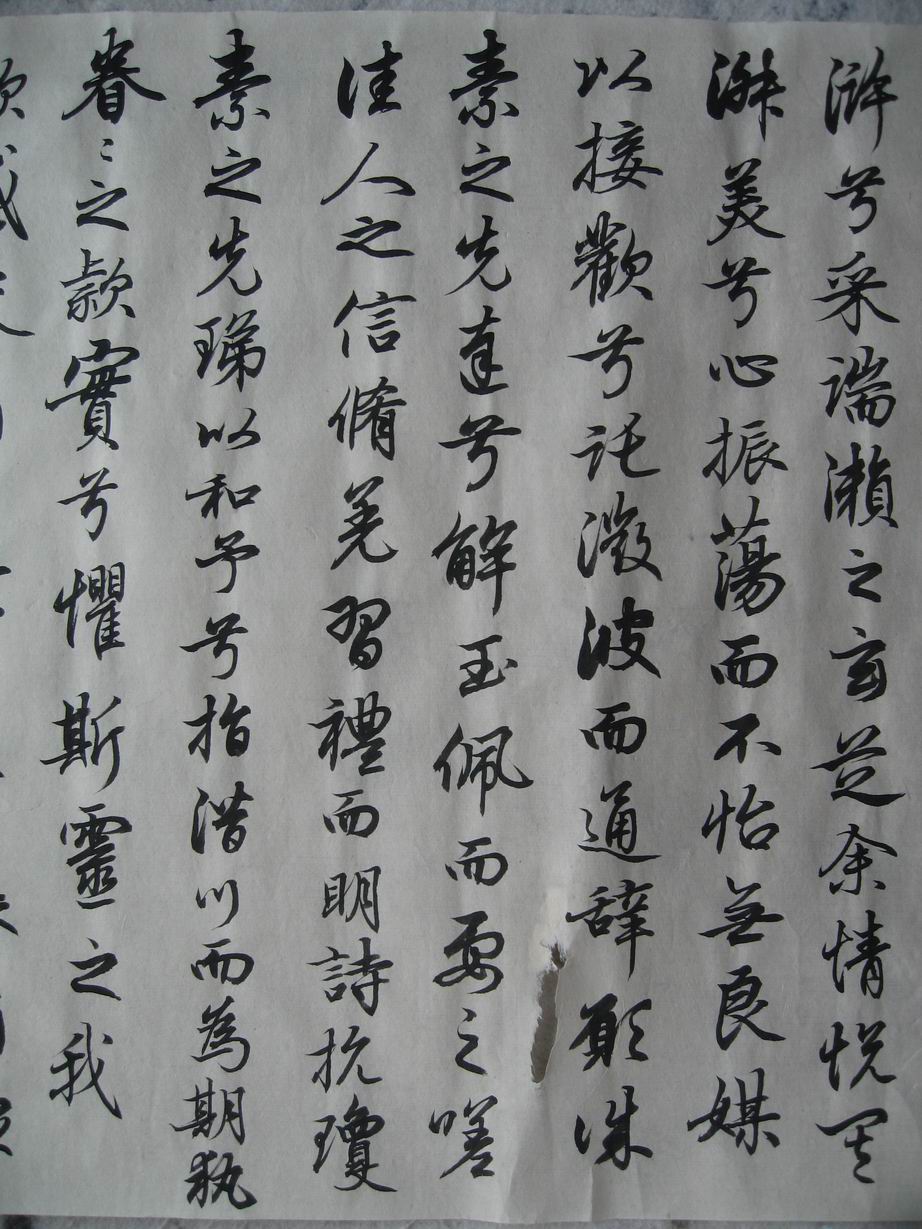 滸兮采湍瀨之玄芝余情悅其
淑美兮心振蕩而不怡無良媒
以接歡兮託微波而通辞願誠
素之先達兮解玉佩而要之嗟
佳人之信脩羌習禮而明詩抗瓊
素之先珶以和予兮指潛川而為期執
眷〻之款實兮懼斯靈之我